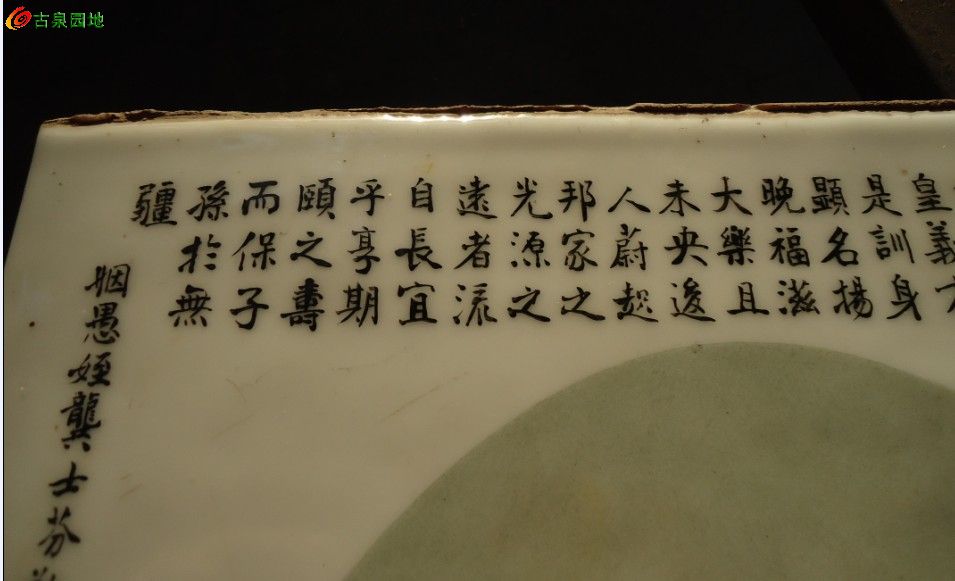 古泉园地
皇義方
是訓身
顯名揚
晚福滋
大樂且
未央逡
人蔚起
邦家之
光源之
遠者流
自長宜
乎享期
頤之壽
而保子
孫於無
疆
姻愚姪龔士芬